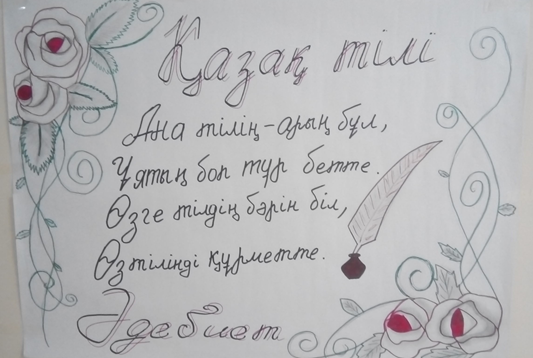 Қазақ тілі
Ана тілің-арың бұл,
Ұятың боп тұр бетте.
Өзге тілдің бәрін біл,
Өзтіліңді құрметте.
Әдебиет